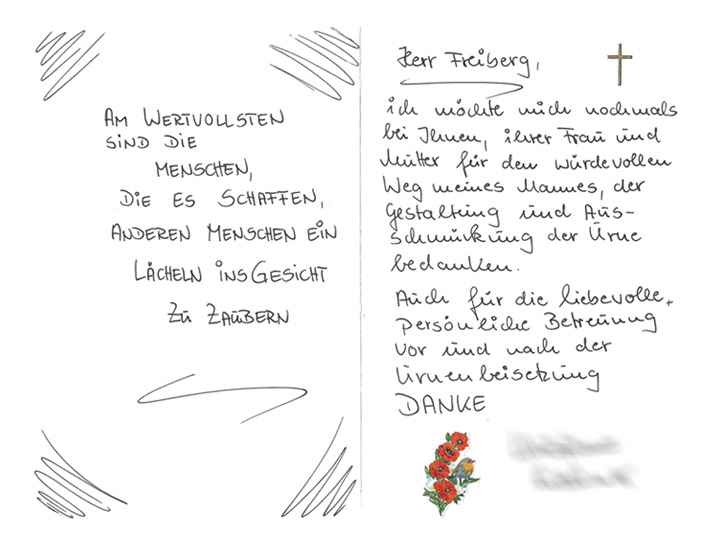 Am Wertvollsten
sind die
Menschen,
die es schaffen,
anderen Menschen ein
Lächeln ins Gesicht
zu zaubern
Herr Freiberg,
ich möchte mich nochmals
bei Ihnen, ihrer Frau und
Mutter für den würdevollen
Weg meines Mannes, der
Gestaltung und Aus-
schmückung der Urne
bedanken.
Auch für die liebevolle,
persönliche Betreuung
vor und nach der
Urnenbeisetzung
DANKE